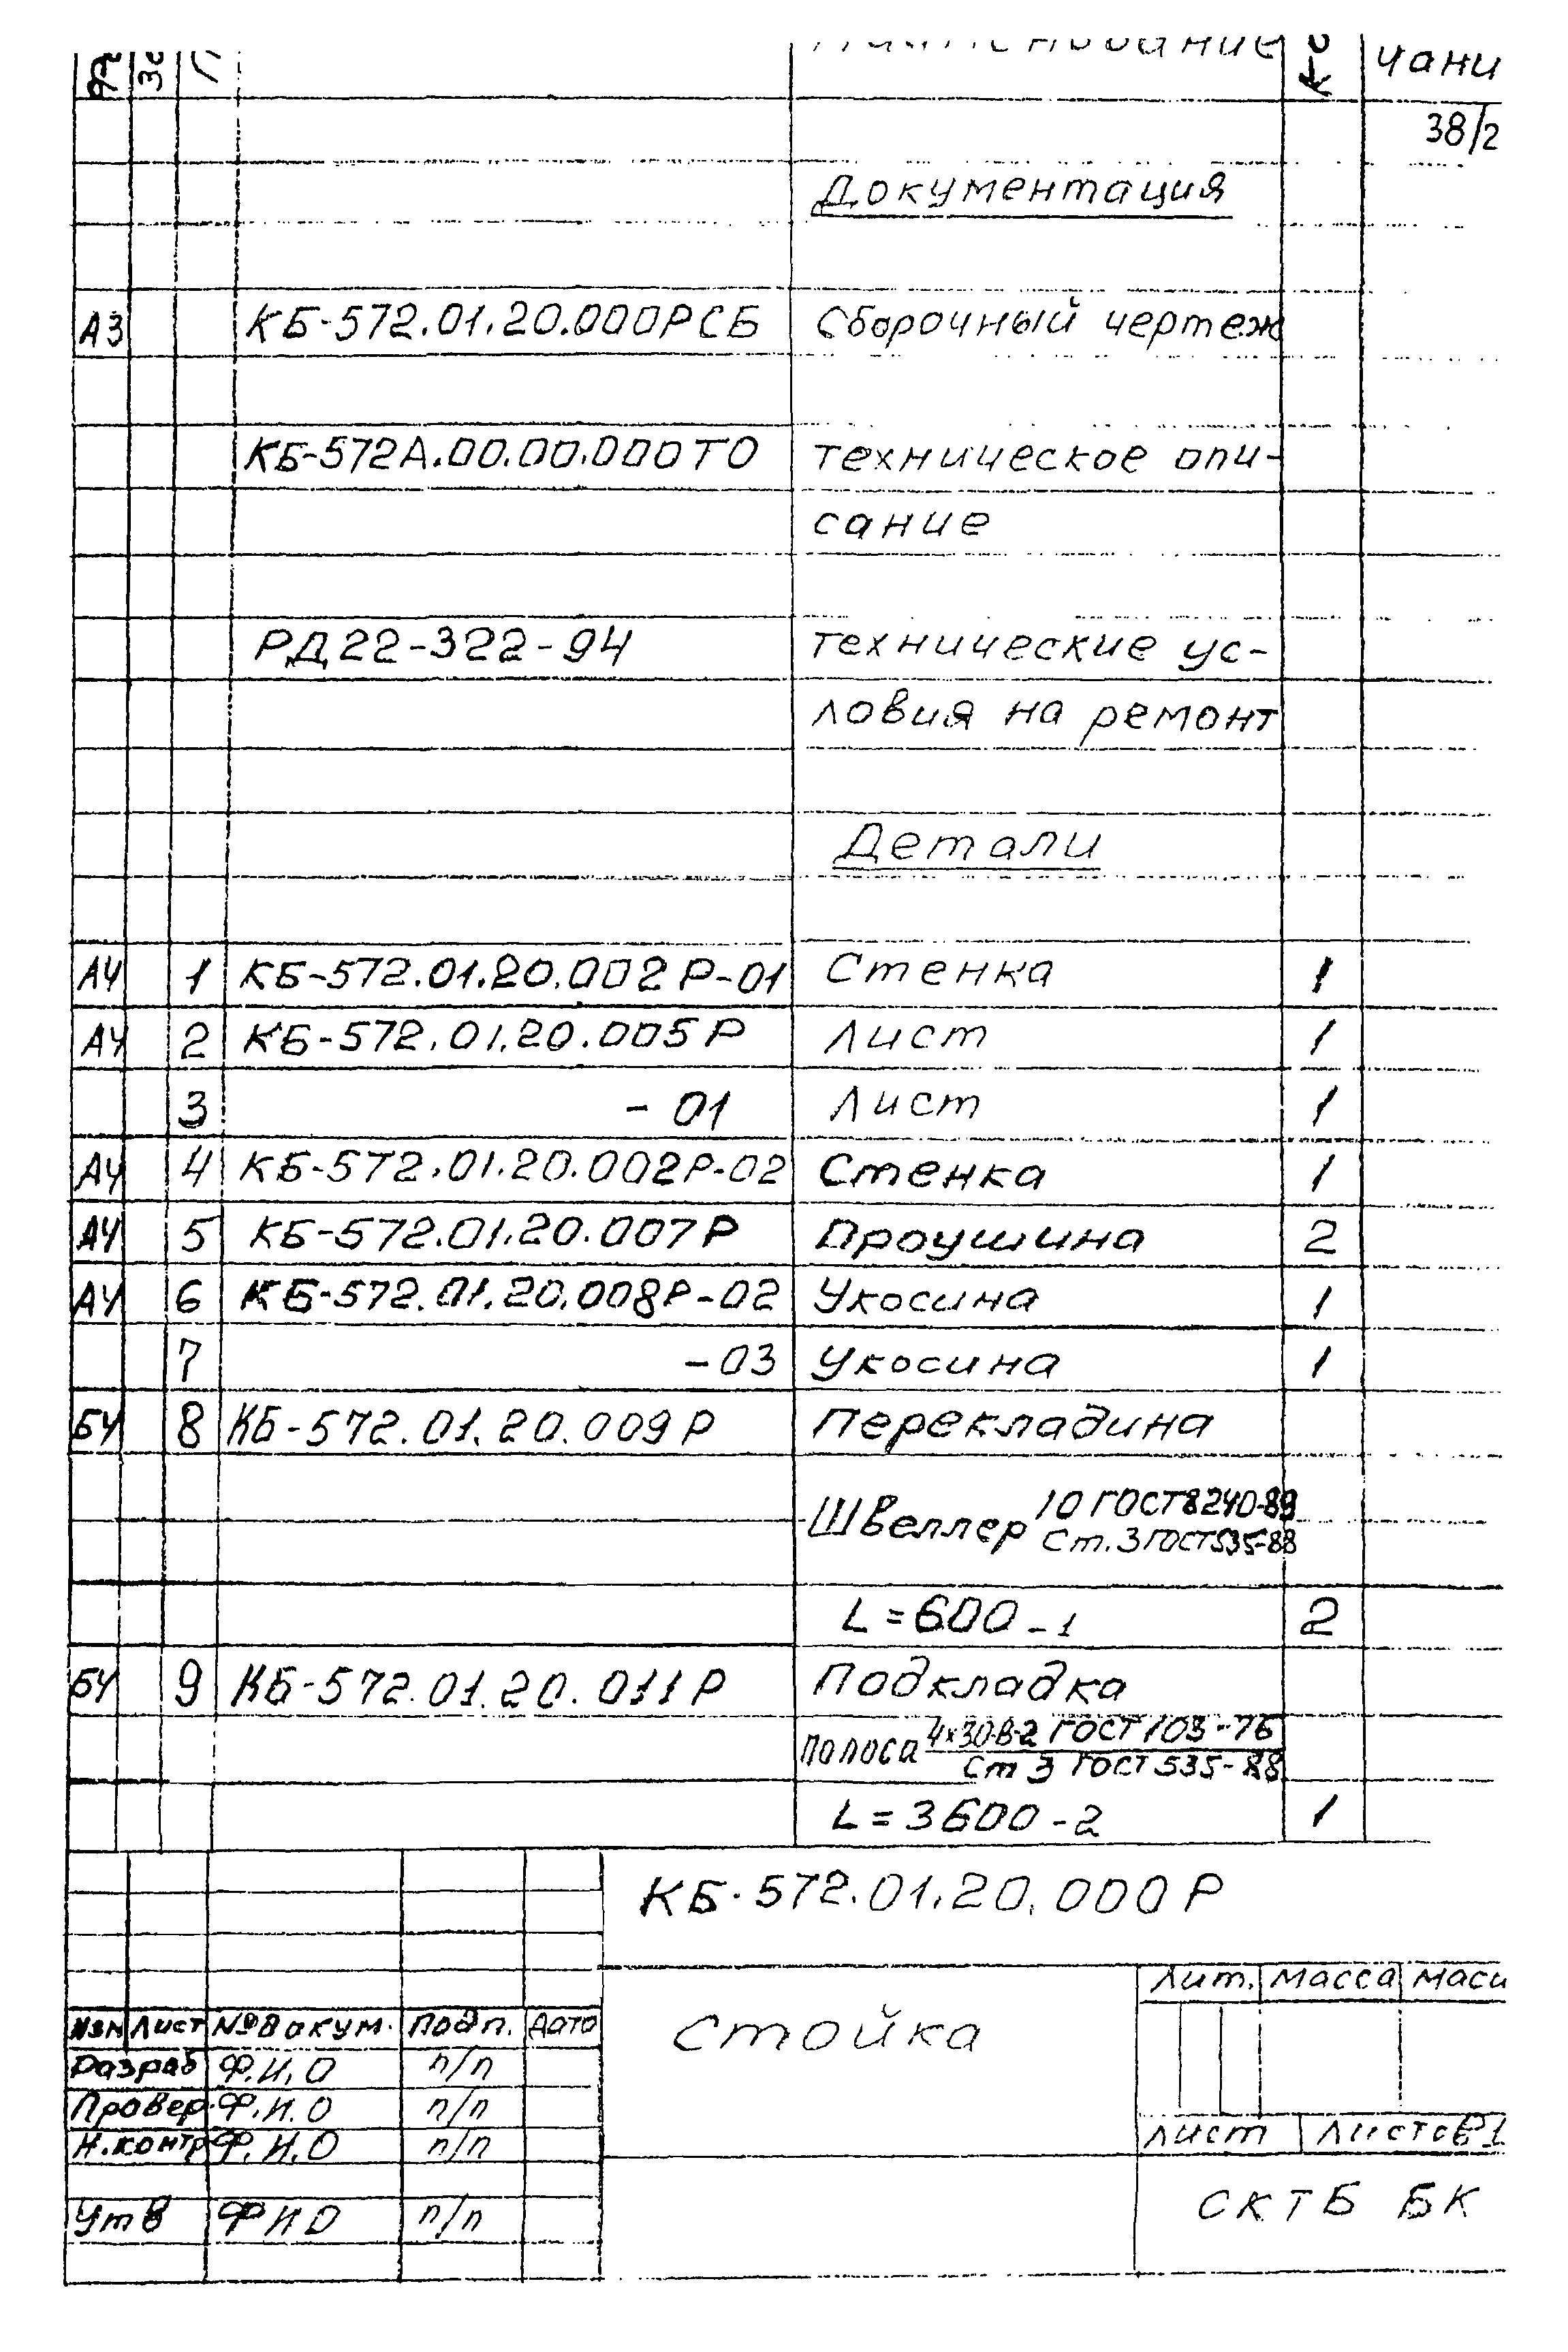 чани
38/2
Документация
А3 КБ-572.01.20.000РСБ Сборочный чертеж
КБ-572А.00.00.000ТО техническое опи-
сание
РД22-322-94 технические ус-
ловия на ремонт
Детали
А4 1 КБ-572.01.20.002Р-01 Стенка 1
А4 2 КБ-572.01.20.005Р Лист 1
3 -01 Лист 1
А4 4 КБ-572.01.20.002Р-02 Стенка 1
А4 5 КБ-572.01.20.007Р Проушина 2
А4 6 КБ-572.01.20.008Р-02 Укосина 1
7 -03 Укосина 1
БЧ 8 КБ-572.01.20.009Р Перекладина
10 ГОСТ8240-89
Швеллер
Ст.3 ГОСТ535-88
L=600-1 2
БЧ 9 КБ-572.01.20.011Р Подкладка
4х30-В-2 ГОСТ103-76
полоса
Ст 3 ГОСТ 535-88
L=3600-2 1
КБ-572.01.20.000Р
Лит. Масса Масш
Изм Лист № докум. Подп. Дата
Стойка
Разраб Ф.И.О п/п
Провер. Ф.И.О п/п
Н.контр Ф.И.О п/п
Лист Листов 1
Утв ФИО п/п
СКТБ БК